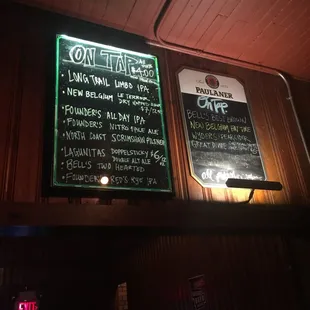 ON TAP
$4.00
LONG TRAIL LIMBO IPA
NEW BELGIUM LE TERROIR
DRY
FOUNDER'S ALL DAY IPA
FOUNDER'S NITRO PALE ALE
NORTH COAST SCRIMSHAW PILSNER
LAGUNITAS DOPPELSTICKY
DOUBLE ALT ALE
BELL'S TWO HEARTED
FOUNDER'S RED'S RYE IPA
PAULANER
On Tap
BELL'S BEST BROWN
NEW BELGIUM FAT TIRE
EXIT